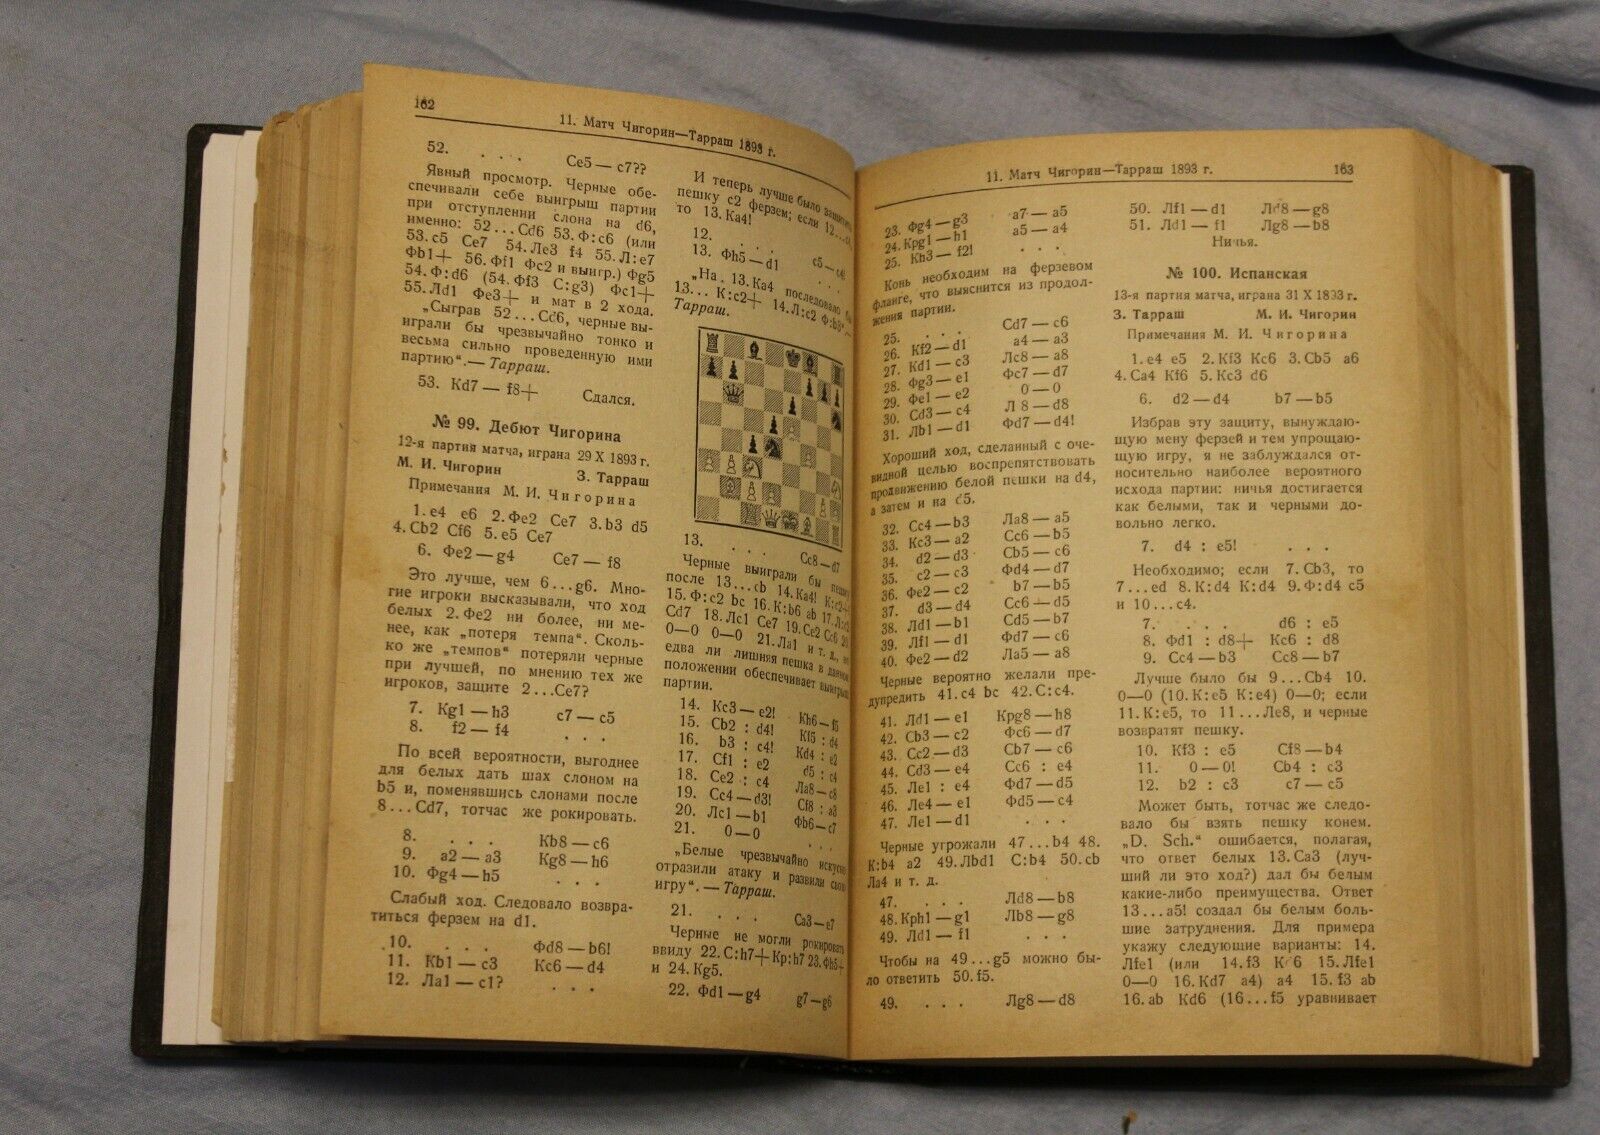 162
11. Матч Чигорин—Тарраш 1893 г.
52. . . . Се5 — с7??
Явный просмотр. Черные обе-
спечивали себе выигрыш партии
при отступлении слона на d6,
именно: 52...Cd6 53. Ф:c6 (или
53. c5 Ce7 54. Ле3 f4 55. Л:e7
Фb1+ 56. Фf1 Фc2 и выигр.) Фg5
54. Ф:d6 (54. Фf3 C:g3) Фc1+
55. Лd1 Фe3+ и мат в 2 хода.
„Сыграв 52...Cd6, черные вы-
играли бы чрезвычайно тонко и
весьма сильно проведенную ими
партию“.— Тарраш.
53. Kd7 — f8+ Сдался.
№ 99. Дебют Чигорина
12-я партия матча, играна 29 X 1893 г.
М. И. Чигорин З. Тарраш
Примечания М. И. Чигорина
1. e4 e6 2. Фe2 Ce7 3. b3 d5
4. Cb2 Cf6 5. e5 Ce7
6. Фe2 — g4 Ce7 — f8
Это лучше, чем 6...g6. Мно-
гие игроки высказывали, что ход
белых 2. Фe2 ни более, ни ме-
нее, как „потеря темпа“. Сколь-
ко же „темпов“ потеряли черные
при лучшей, по мнению тех же
игроков, защите 2...Ce7?
7. Kg1 — h3 c7 — c5
8. f2 — f4 . . .
По всей вероятности, выгоднее
для белых дать шах слоном на
b5 и, поменявшись слонами после
8...Cd7, тотчас же рокировать.
8. . . . Kb8 — c6
9. a2 — a3 Kg8 — h6
10. Фg4 — h5 . . .
Слабый ход. Следовало возвра-
титься ферзем на d1.
10. . . . Фd8 — b6!
11. Kb1 — c3 Kc6 — d4
12. Лa1 — c1? . . .
И теперь лучше было защитить
пешку c2 ферзем; если 12...
то 13. Ka4!
12. . . . c5 — c4!
13. Фh5 — d1 . . .
„На 13. Ka4 последовало бы
13... K:c2+ 14. Л:c2 Ф:b3“.—
Тарраш.
13. . . . Cc8 — d7
Черные выиграли бы пешку
после 13...cb 14. Ka4! K:c2+
15. Ф:c2 bc 16. K:b6 ab 17. Л:c2
Cd7 18. Лc1 Ce7 19. Ce2 Cc6 20.
0—0 0—0 21. Лa1 и т. д., но
едва ли лишняя пешка в данном
положении обеспечивает выигрыш
партии.
14. Kc3 — e2! Kh6 — f5
15. Cb2 : d4! Kf5 : d4
16. b3 : c4! Kd4 : e2
17. Cf1 : e2 d5 : c4
18. Ce2 : c4 Лa8 — c8
19. Cc4 — d3! Cf8 : a3
20. Лc1 — b1 Фb6 — c7
21. 0 — 0 . . .
„Белые чрезвычайно искусно
отразили атаку и развили свою
игру“. — Тарраш.
21. . . . Ca3 — e7
Черные не могли рокировать
ввиду 22. C:h7+ Kp:h7 23. Фh5+
и 24. Kg5.
22. Фd1 — g4 g7 — g6
11. Матч Чигорин—Тарраш 1893 г.
163
23. Фg4 — g3 a7 — a5
24. Kpg1 — h1 a5 — a4
25. Kh3 — f2! . . .
Конь необходим на ферзевом
фланге, что выяснится из продол-
жения партии.
25. . . . Cd7 — c6
26. Kf2 — d1 a4 — a3
27. Kd1 — c3 Лc8 — a8
28. Фg3 — e1 Фc7 — d7
29. Фe1 — e2 0 — 0
30. Cd3 — c4 Л 8 — d8
31. Лb1 — d1 Фd7 — d4!
Хороший ход, сделанный с оче-
видной целью воспрепятствовать
продвижению белой пешки на d4,
а затем и на d5.
32. Cc4 — b3 Лa8 — a5
33. Kc3 — a2 Cc6 — b5
34. d2 — d3 Cb5 — c6
35. c2 — c3 Фd4 — d7
36. Фe2 — c2 b7 — b5
37. d3 — d4 Cc6 — d5
38. Лd1 — b1 Cd5 — b7
39. Лf1 — d1 Фd7 — c6
40. Фe2 — d2 Лa5 — a8
Черные вероятно желали пре-
дупредить 41. c4 bc 42. C:c4.
41. Лd1 — e1 Kpg8 — h8
42. Cb3 — c2 Фc6 — d7
43. Cc2 — d3 Cb7 — c6
44. Cd3 — e4 Cc6 : e4
45. Лe1 : e4 Фd7 — d5
46. Лe4 — e1 Фd5 — c4
47. Лe1 — d1 . . .
Черные угрожали 47...b4 48.
K:b4 a2 49. Лbd1 C:b4 50. cb
Лa4 и т. д.
47. . . . Лd8 — b8
48. Kph1 — g1 Лb8 — g8
49. Лd1 — f1 . . .
Чтобы на 49...g5 можно бы-
ло ответить 50. f5.
49. . . . Лg8 — d8
50. Лf1 — d1 Лd8 — g8
51. Лd1 — f1 Лg8 — b8
Ничья.
№ 100. Испанская
13-я партия матча, играна 31 X 1893 г.
З. Тарраш М. И. Чигорин
Примечания М. И. Чигорина
1. e4 e5 2. Kf3 Kc6 3. Cb5 a6
4. Ca4 Kf6 5. Kc3 d6
6. d2 — d4 b7 — b5
Избрав эту защиту, вынуждаю-
щую мену ферзей и тем упрощаю-
щую игру, я не заблуждался от-
носительно наиболее вероятного
исхода партии: ничья достигается
как белыми, так и черными до-
вольно легко.
7. d4 : e5! . . .
Необходимо; если 7. Cb3, то
7...ed 8. K:d4 K:d4 9. Ф:d4 c5
и 10...c4.
7. . . . d6 : e5
8. Фd1 : d8+ Kc6 : d8
9. Cc4 — b3 Cc8 — b7
Лучше было бы 9...Cb4 10.
0—0 (10. K:e5 K:e4) 0—0; если
11. K:e5, то 11...Лe8, и черные
возвратят пешку.
10. Kf3 : e5 Cf8 — b4
11. 0 — 0! Cb4 : c3
12. b2 : c3 c7 — c5
Может быть, тотчас же следо-
вало бы взять пешку конем.
„D. Sch.“ ошибается, полагая,
что ответ белых 13. Ca3 (луч-
ший ли это ход?) дал бы белым
какие-либо преимущества. Ответ
13...a5! создал бы белым боль-
шие затруднения. Для примера
укажу следующие варианты: 14.
Лfe1 (или 14. f3 K 6 15. Лfe1
0—0 16. Kd7 a4) a4 15. f3 ab
16. ab Kd6 (16...f5 уравнивает